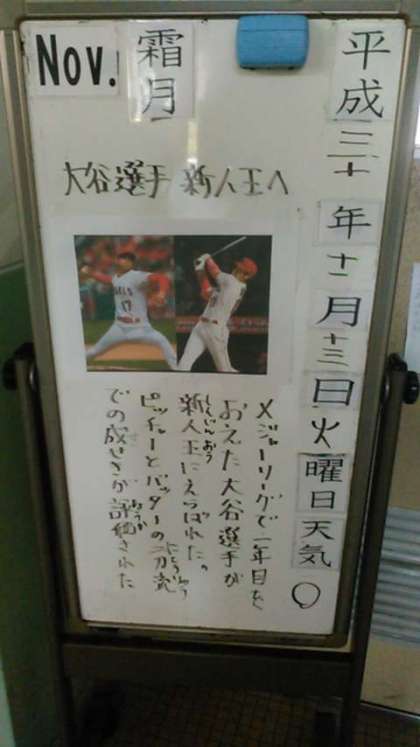 平成三十年十一月十三日火曜日天気○
霜月
Nov.
大谷選手 新人王へ
メジャーリーグで一年目を
おえた大谷選手が
新人王にえらばれた。
しんじんおう
ピッチャーとバッターの二刀流
にとうりゅう
での成せきが評価された
ひょうか
17